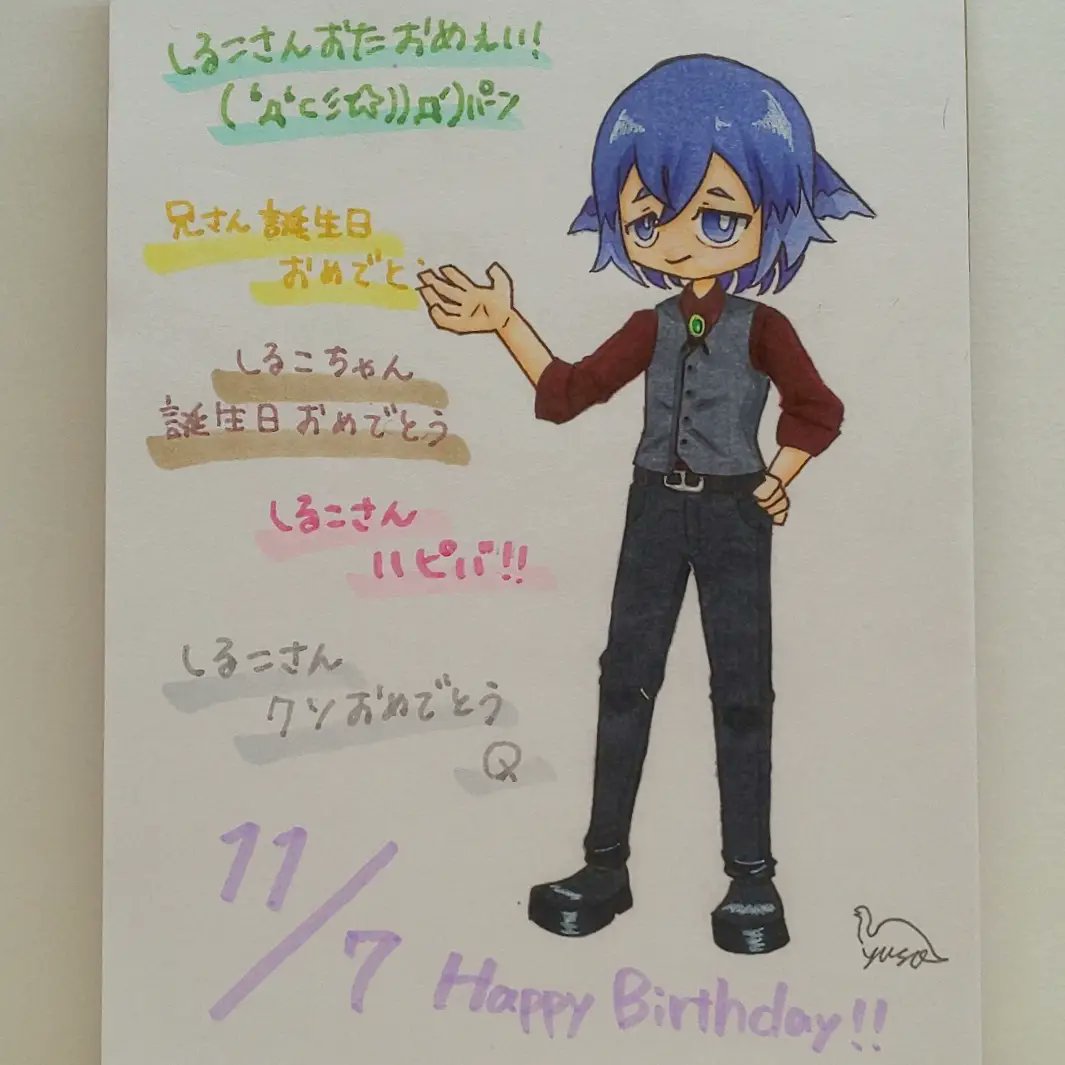 しるこさんおたおめぇい!
( 'д'⊂彡☆))Д´)パーン
兄さん誕生日
おめでとう
しるこちゃん
誕生日おめでとう
しるこさん
ハピバ!!
しるこさん
クソおめでとう
Q
11/7 Happy Birthday!!
yuso